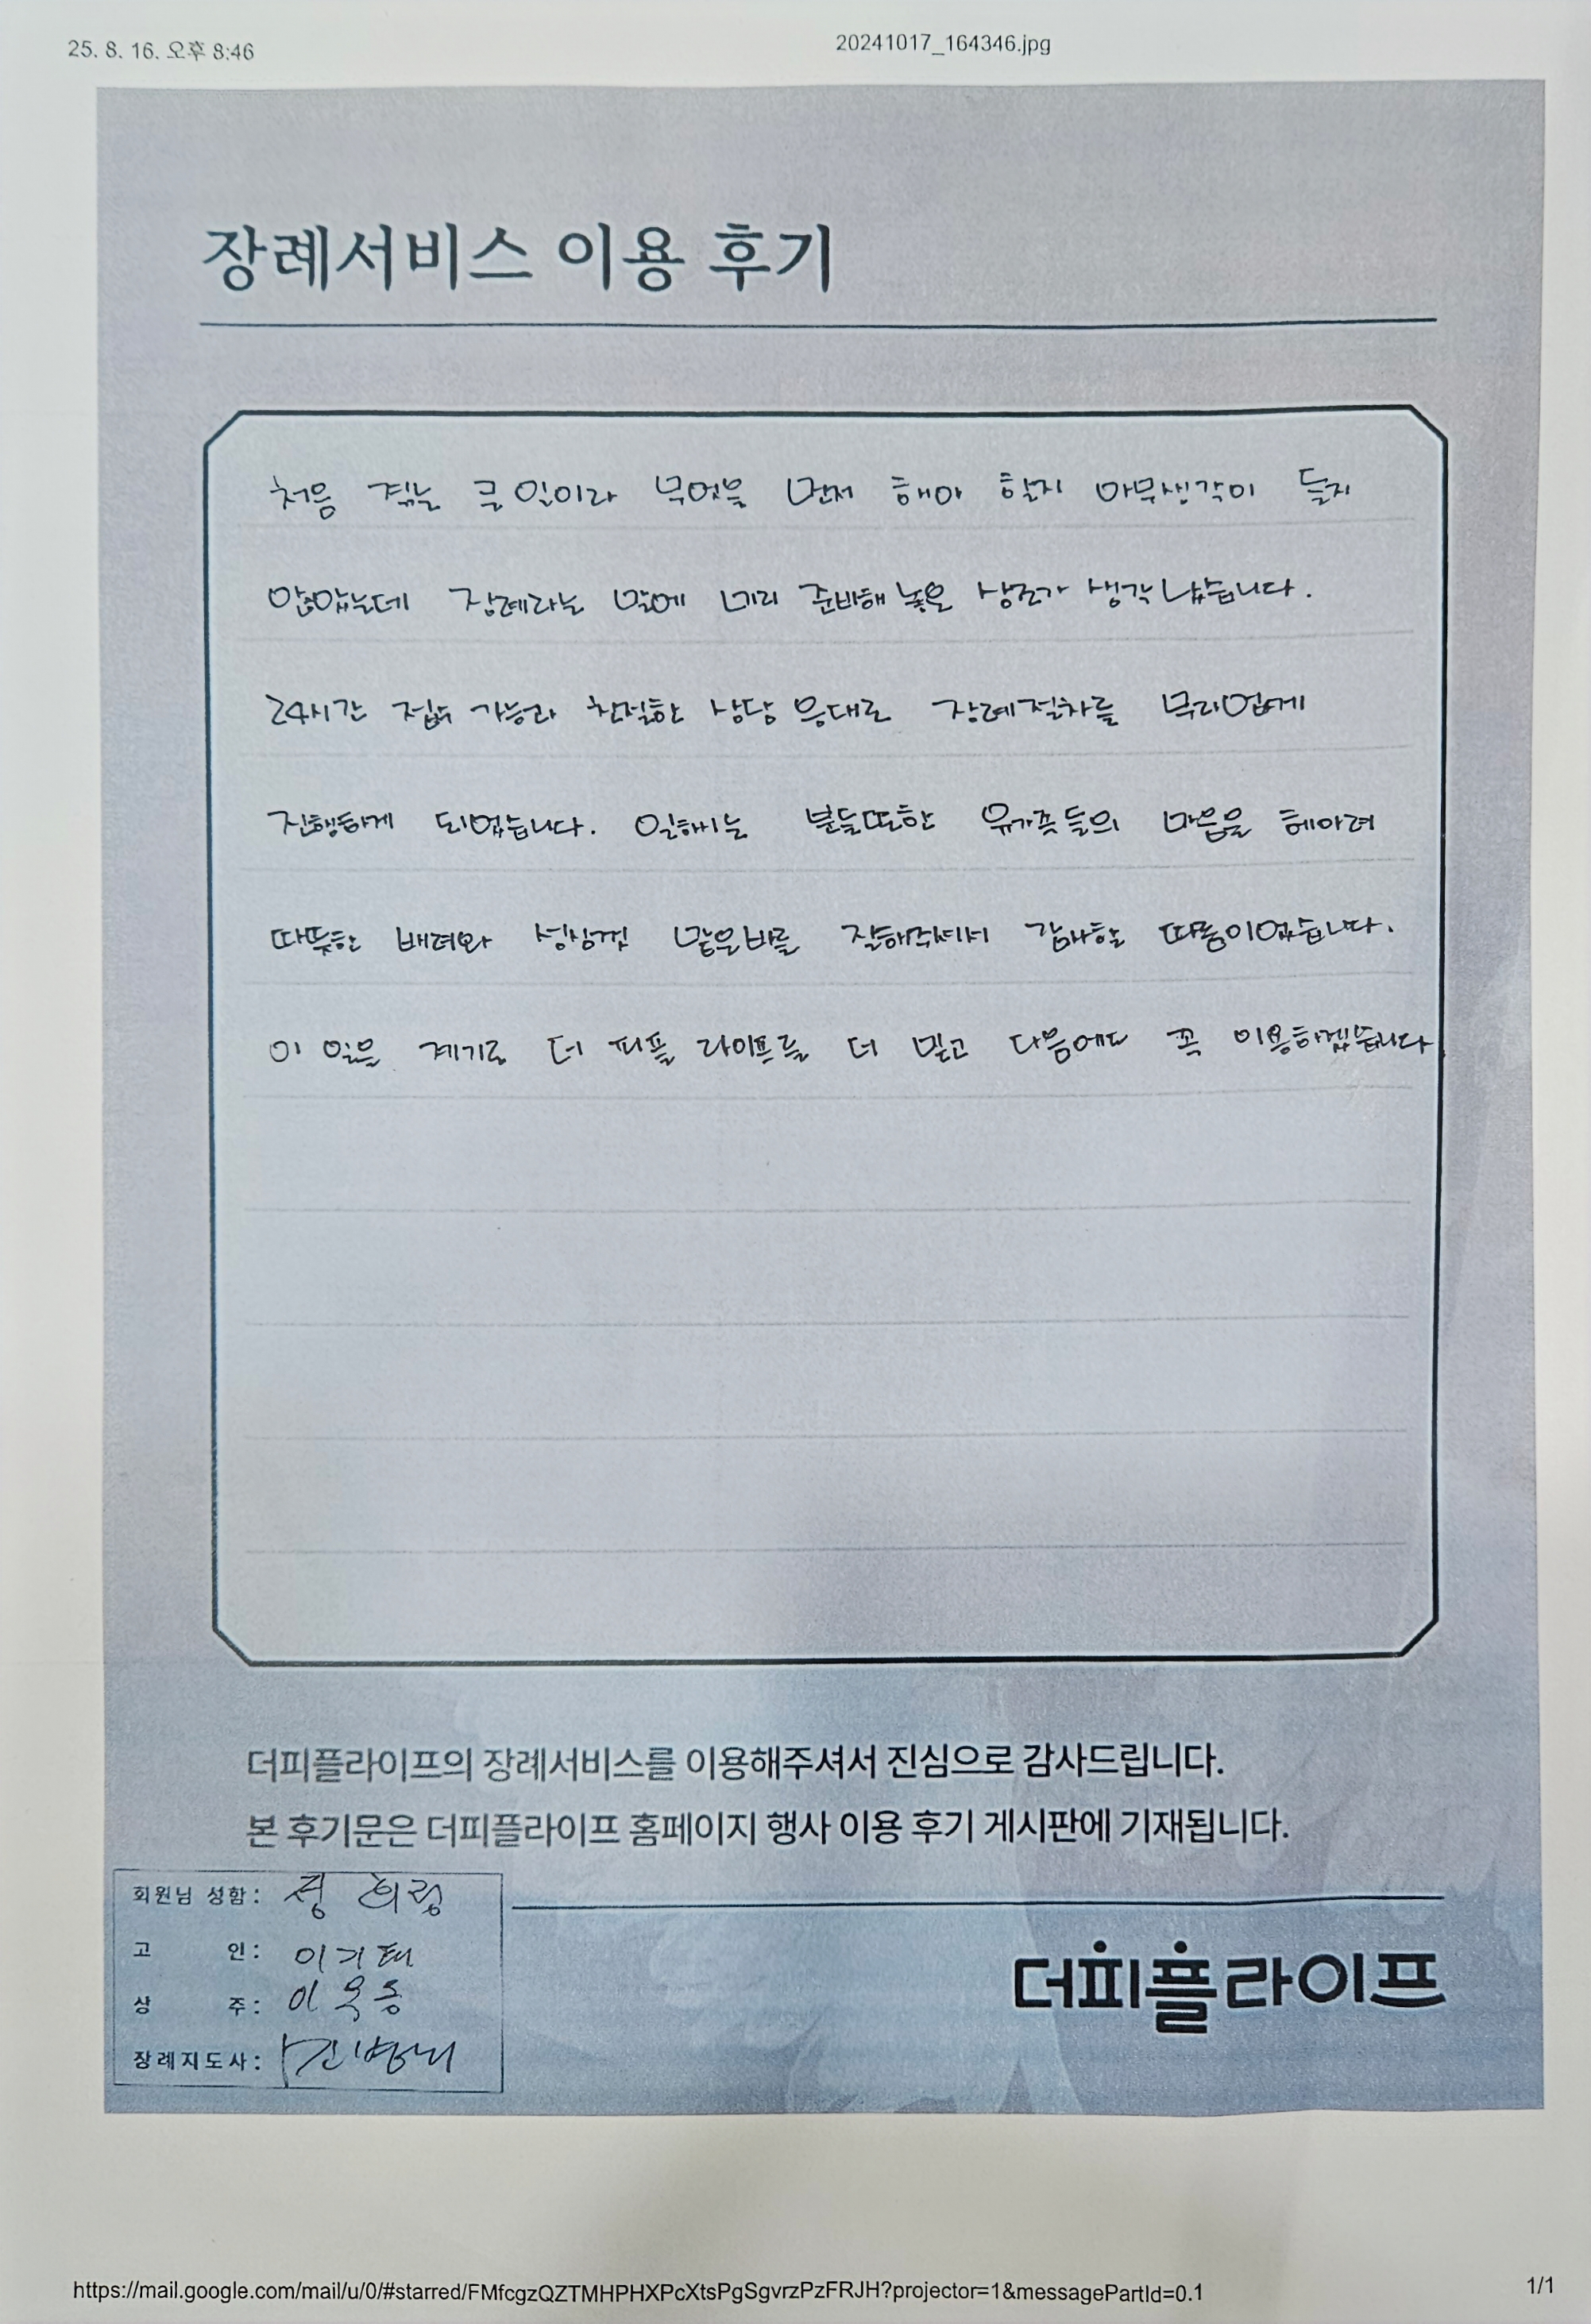 25. 8. 16. 오후 8:46
20241017_164346.jpg
장례서비스 이용 후기
처음 겪는 큰 일이라 무엇을 먼저 해야 할지 아무생각이 들지
않았는데 장례라는 말에 미리 준비해 놓은 상조가 생각 났습니다.
24시간 접수 가능과 친절한 상담 응대로 장례절차를 무리없게
진행하게 되었습니다. 일하시는 분들또한 유가족들의 마음을 헤아려
따뜻한 배려와 성심껏 맡은바를 잘해주셔서 감사할 따름이었습니다.
이 일을 계기로 더 피플 라이프를 더 믿고 다음에도 꼭 이용하겠습니다
더피플라이프의 장례서비스를 이용해주셔서 진심으로 감사드립니다.
본 후기문은 더피플라이프 홈페이지 행사 이용 후기 게시판에 기재됩니다.
회원님 성함: 정희령
고 인: 이기태
상 주:
장례지도사:
더피플라이프
https://mail.google.com/mail/u/0/#starred/FMfcgzQZTMHPHXPcXtsPgSgvrzPzFRJH?projector=1&messagePartId=0.1
1/1